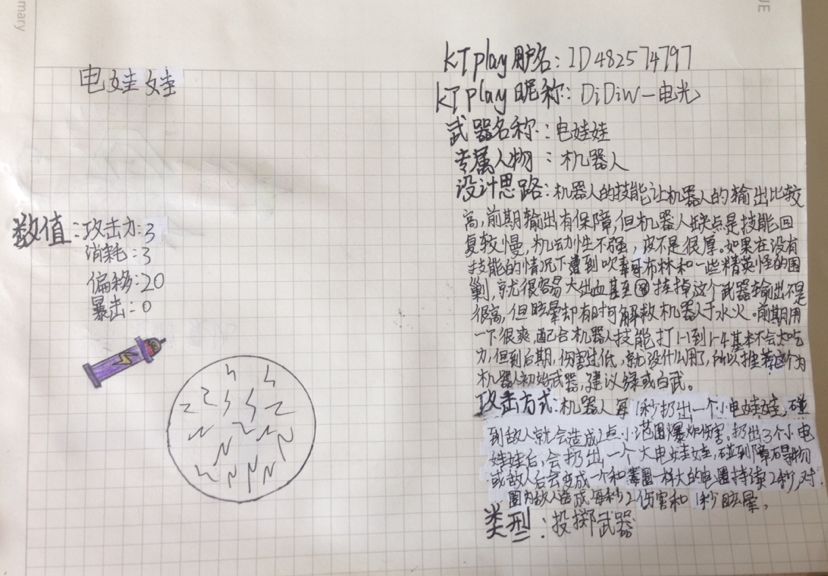 电娃娃
数值:攻击力:3
消耗:3
偏移:20
暴击:0
KTplay用户名:ID482574797
KTplay昵称:DiDiW一电光
武器名称:电娃娃
专属人物:机器人
设计思路:机器人的技能让机器人的输出比较
高,前期输出有保障,但机器人缺点是技能回
复较慢,机动性不强,皮不是很厚。如果在没有
技能的情况下遭到吹毒哥布林和一些精英怪的围
剿,就很容易大出血甚至挂掉,这个武器输出不是
很高,但眩晕却有时可解救机器人于水火。前期用
一下很爽,配合机器人技能打1-1到1-4基本不会太吃
力,但到后期,伤害过低,就没什么用了,所以推荐这个为
机器人初始武器,建议绿或白武。
攻击方式:机器人每1秒扔出一个小电娃娃,碰
到敌人就会造成2点小范围爆炸伤害,扔出3个小电
娃娃后,会扔出一个大电娃娃,碰到障碍物
或敌人后会变成一个和毒圈一样大的电圈持续2秒,对
圈内敌人造成每秒2伤害和1秒眩晕。
类型:投掷武器